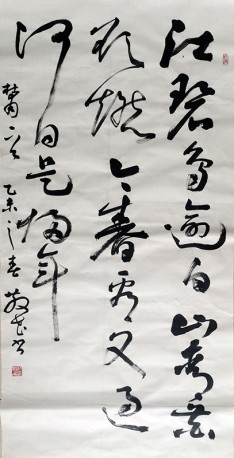 江碧鸟逾白山青花
欲燃今春看又过
何日是归年
杜甫一次
乙未之春